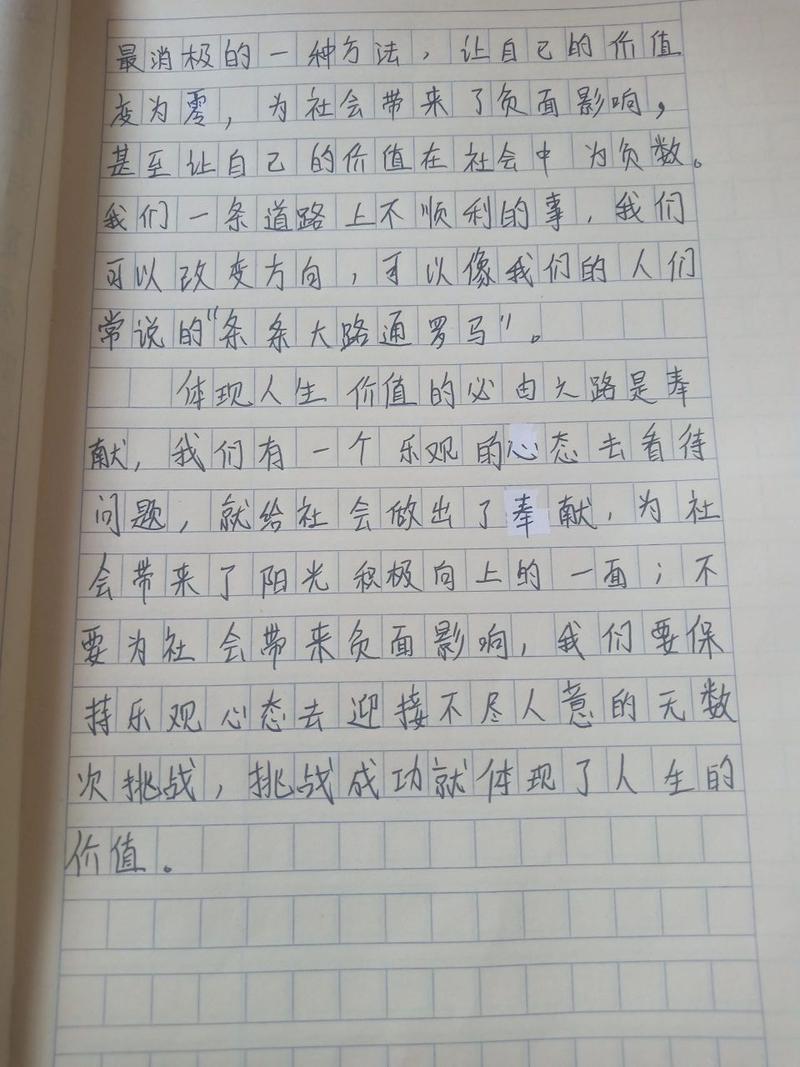 最消极的一种方法，让自己的价值
变为零，为社会带来了负面影响，
甚至让自己的价值在社会中为负数。
我们一条道路上不顺利的事，我们
可以改变方向，可以像我们的人们
常说的“条条大路通罗马”。
体现人生价值的必由之路是奉
献，我们有一个乐观的心态去看待
问题，就给社会做出了奉献，为社
会带来了阳光积极向上的一面；不
要为社会带来负面影响，我们要保
持乐观心态去迎接不尽人意的无数
次挑战，挑战成功就体现了人生的
价值。